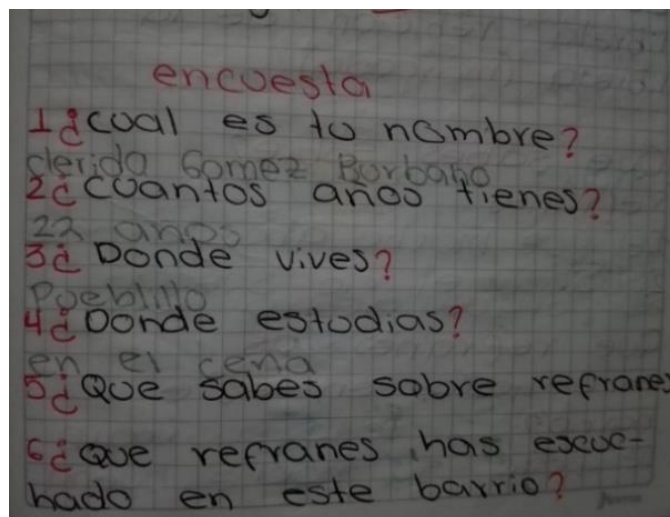 encuesta
1¿cual es tu nombre?
clerida Gomez Burbano
2¿cuantos años tienes?
22 anos
3¿Donde vives?
Pueblillo
4¿Donde estudias?
en el cena
5¿Que sabes sobre refranes
6¿que refranes has escuc-
hado en este barrio?